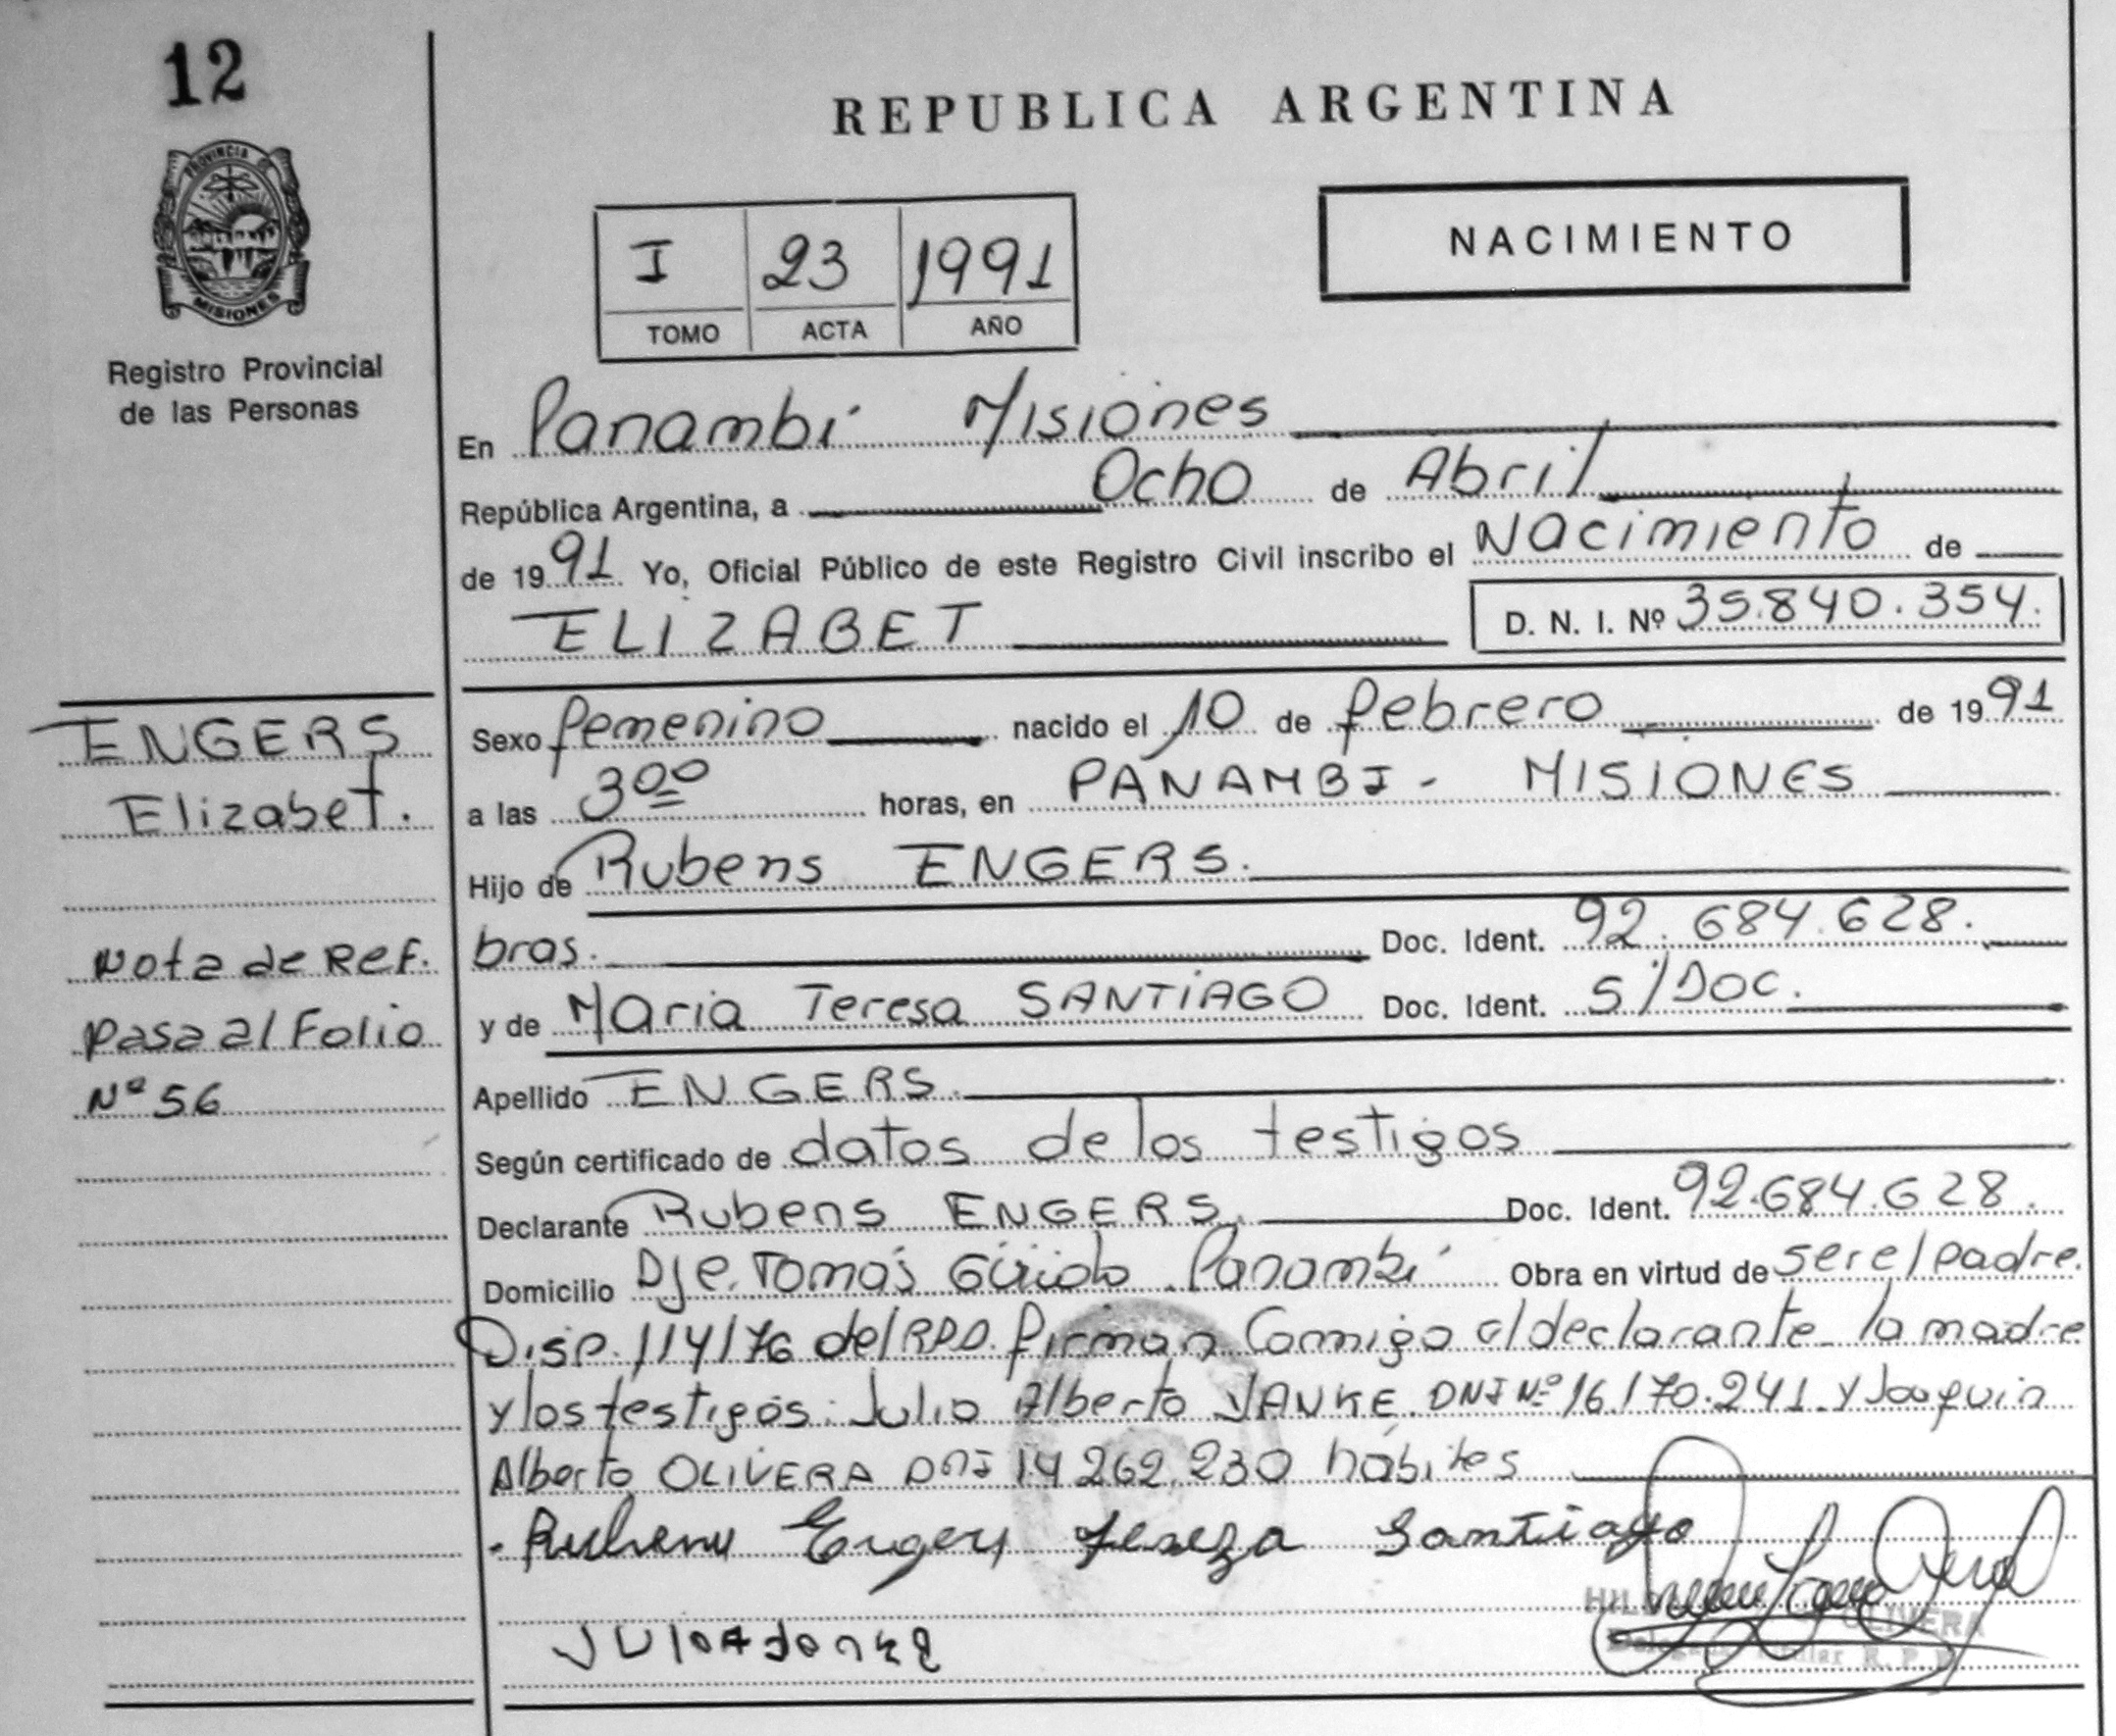 12
REPUBLICA ARGENTINA
PROVINCIA
MISIONES
NACIMIENTO
I 23 1991
TOMO ACTA AÑO
Registro Provincial
de las Personas
En Panambí Misiones
República Argentina, a Ocho de Abril
de 1991 Yo, Oficial Público de este Registro Civil inscribo el Nacimiento de
ELIZABET D. N. I. Nº 35.840.354.
ENGERS
Elizabet.
Nota de Ref.
pasa al Folio
Nº 56
Sexo femenino nacido el 10 de febrero de 1991
a las 300 horas, en PANAMBI - MISIONES
Hijo de Rubens ENGERS.
bras. Doc. Ident. 92.684.628.
y de Maria Teresa SANTIAGO Doc. Ident. S/Doc.
Apellido ENGERS.
Según certificado de datos de los testigos
Declarante Rubens ENGERS. Doc. Ident. 92.684.628.
Domicilio Pje. Tomás Guido Panambí Obra en virtud de ser el padre.
Disp. 114/76 del RPP. firman Comigo el declarante la madre
y los testigos: Julio Alberto YANKE DNI Nº 16.170.241 y Joaquin
Alberto OLIVERA DNI 14.262.230 hábiles
Rubens Engers Tereza Santiago
OLIVERA
R. P. P.